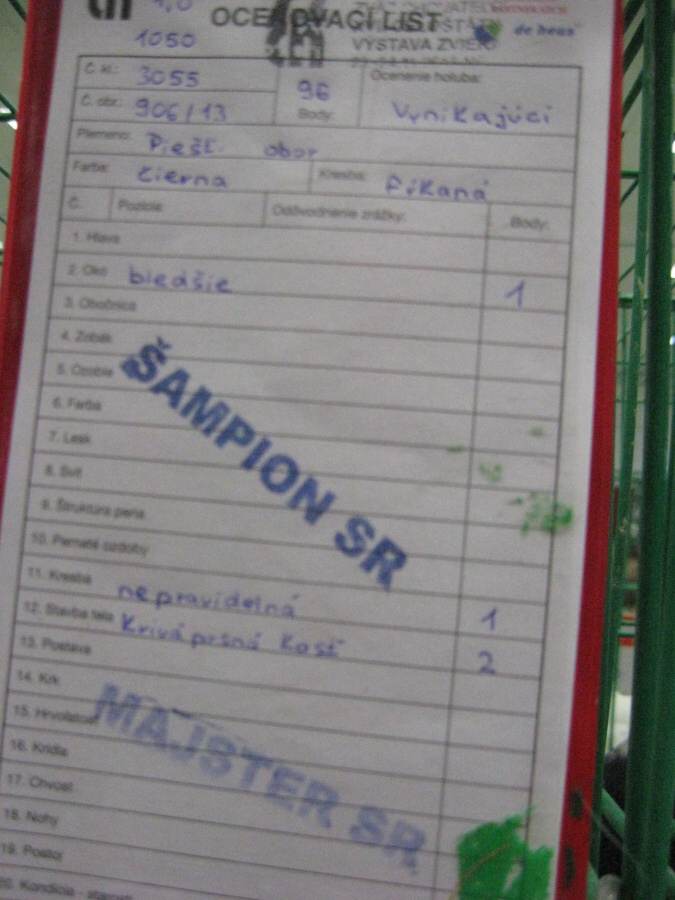 1,0
OCEŇOVACÍ LIST
1050
VÝSTAVA ZVIER
de heus
Č. kl.: 3055
96 Body:
Ocenenie holuba: Vynikajúci
Č. obr.: 906/13
Plemeno: Piešť. obor
Farba: čierna
Kresba: Pŕkaná
Č. Pozícia: Odôvodnenie zrážky: Body:
1. Hlava
2. Oko bledšie 1
3. Obočnica
4. Zobák
5. Ozobie
6. Farba
7. Lesk
8. Svit
9. Štruktúra peria
10. Pernaté ozdoby
11. Kresba nepravidelná 1
12. Stavba tela Krivá prsná kosť 2
13. Postava
14. Krk
15. Hrvoľatosť
16. Krídla
17. Chvost
18. Nohy
19. Postoj
20. Kondícia -
ŠAMPION SR
MAJSTER SR